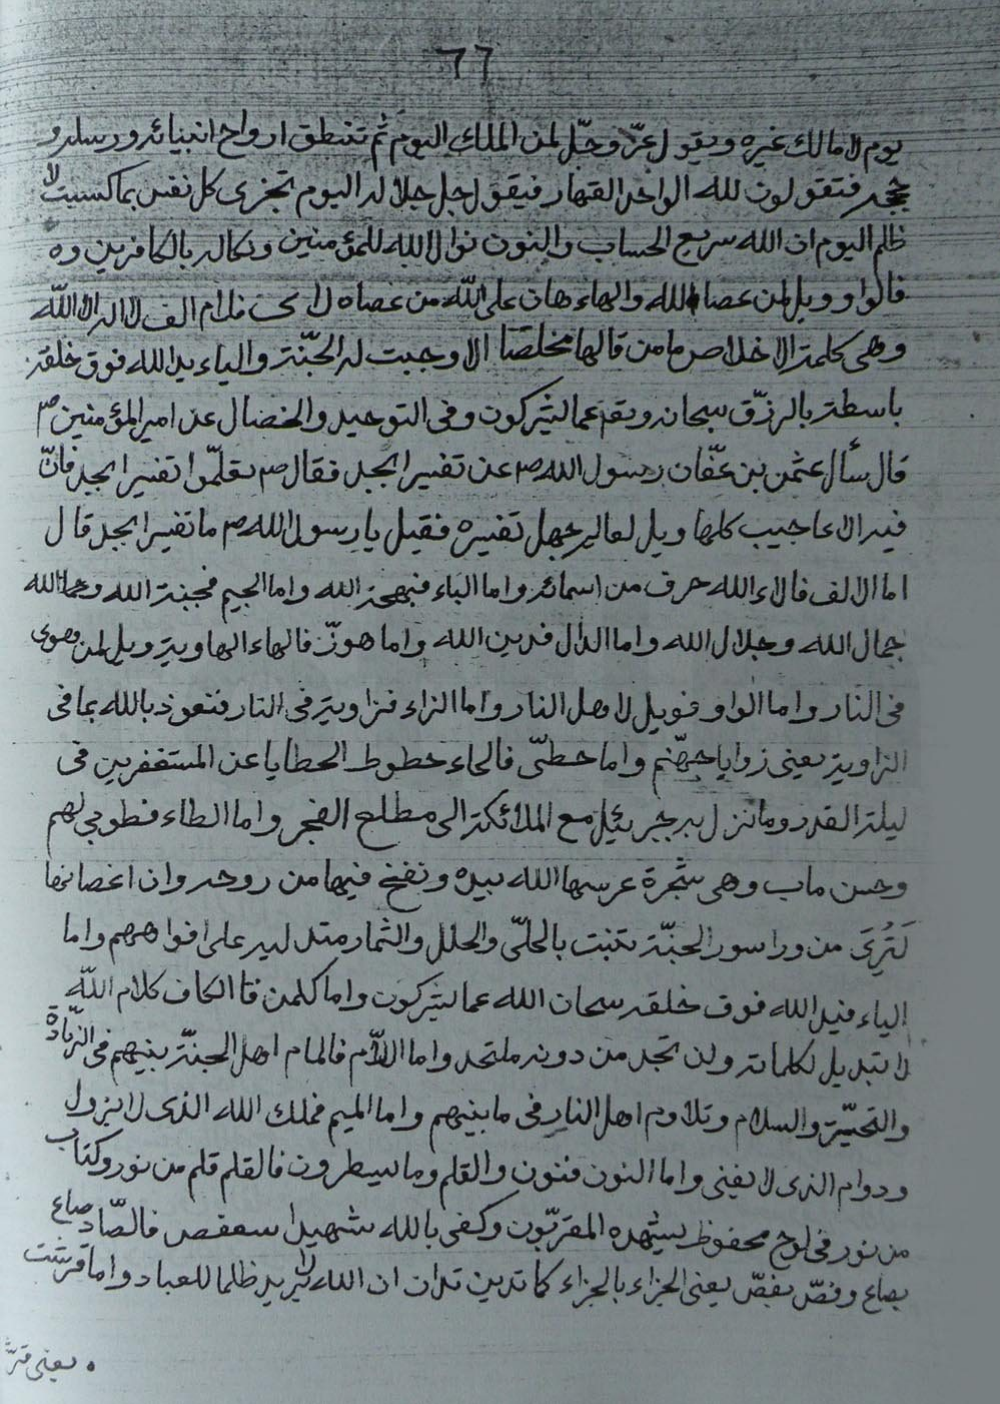 ٦٦
يوم لا مالك غيره ويقول عزّ وجلّ لمن الملك اليوم ثم تنطق ارواح انبيائه ورسله و
حججه فتقولون لله الواحد القهار فيقول جل جلاله اليوم تجزى كل نفس بما كسبت لا
ظلم اليوم ان الله سريع الحساب والنون نوال الله للمؤمنين ونكاله بالكافرين وه
فالواو ويل لمن عصا الله والهاء هان على الله من عصاه لا فلام الف لا اله الا الله
وهى كلمة الاخلاص ما من قالها مخلصا الا وجبت له الجنّة والياء يد الله فوق خلقه
باسطة بالرزق سبحانه وتعم عما يشركون وفى التوحيد والخصال عن امير المؤمنين ص
قال سأل عثمن بن عفّان رسول الله ص عن تفسير ابجد فقال ص تعلّموا تفسير ابجد فانّ
فيه الاعاجيب كلها ويل لعالم جهل تفسيره فقيل يا رسول الله ص ما تفسير ابجد قال
اما الالف فالاء الله حرف من اسمائه واما الباء فبهجة الله واما الجيم فجنة الله
جمال الله وجلال الله واما الدال فدين الله واما هوزّ فالهاء الهاوية ويل لمن هوى
فى النار واما الواو فويل لاهل النار واما الزاء فزاوية فى النار فنعوذ بالله بما فى
الزاوية يعنى زوايا جهنّم واما حطّى فالحاء حطوط الخطايا عن المستغفرين فى
ليلة القدر وما نزل به جبرئيل مع الملائكة الى مطلع الفجر واما الطاء فطوبى لهم
وحسن ماب وهى شجرة غرسها الله بيده ونفخ فيها من روحه وان اغصانها
لَتُرى من ورا سور الجنّة تنبت بالحلّى والحلل والثمار متدليه على افواههم واما
الياء فيد الله فوق خلقه سبحان الله عما يشركون واما كلمن فا الكاف كلام الله
لا تبديل لكلماته ولن تجد من دونه ملتحدا واما اللّام فالمام اهل الجنّة بينهم فى الزيارة
والتحيّة والسلام وتلاوم اهل النار فى ما بينهم واما الميم فملك الله الذى لا يزول
ودوام الذى لا يفنى واما النون فنون والقلم وما يسطرون فالقلم قلم من نور وكتاب
من نور فى لوح محفوظ يشهده المقربّون وكفى بالله شهيدا سعفص فالصّاد صاع
بصاع وفصّ بفصّ يعنى الجزاء بالجزاء كما تدين تدان ان الله لا يريد ظلما للعباد واما قرشت
يعنى